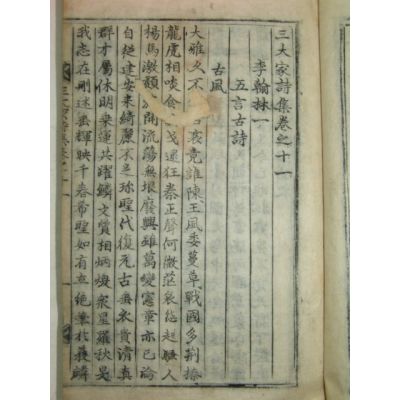 三大家詩集卷之十一
李翰林一
五言古詩
古風
大雅久不衰竟誰陳王風委蔓草戰國多荊榛
龍虎相啖食戈逮狂秦正聲何微茫哀怨起騷人
楊馬激頹開流蕩無垠廢興雖萬變憲章亦已淪
自從建安來綺麗不足珍聖代復元古垂衣貴清真
群才屬休明乘運共躍鱗文質相炳煥衆星羅秋旻
我志在刪述垂輝映千春希聖如有立絶筆於獲麟